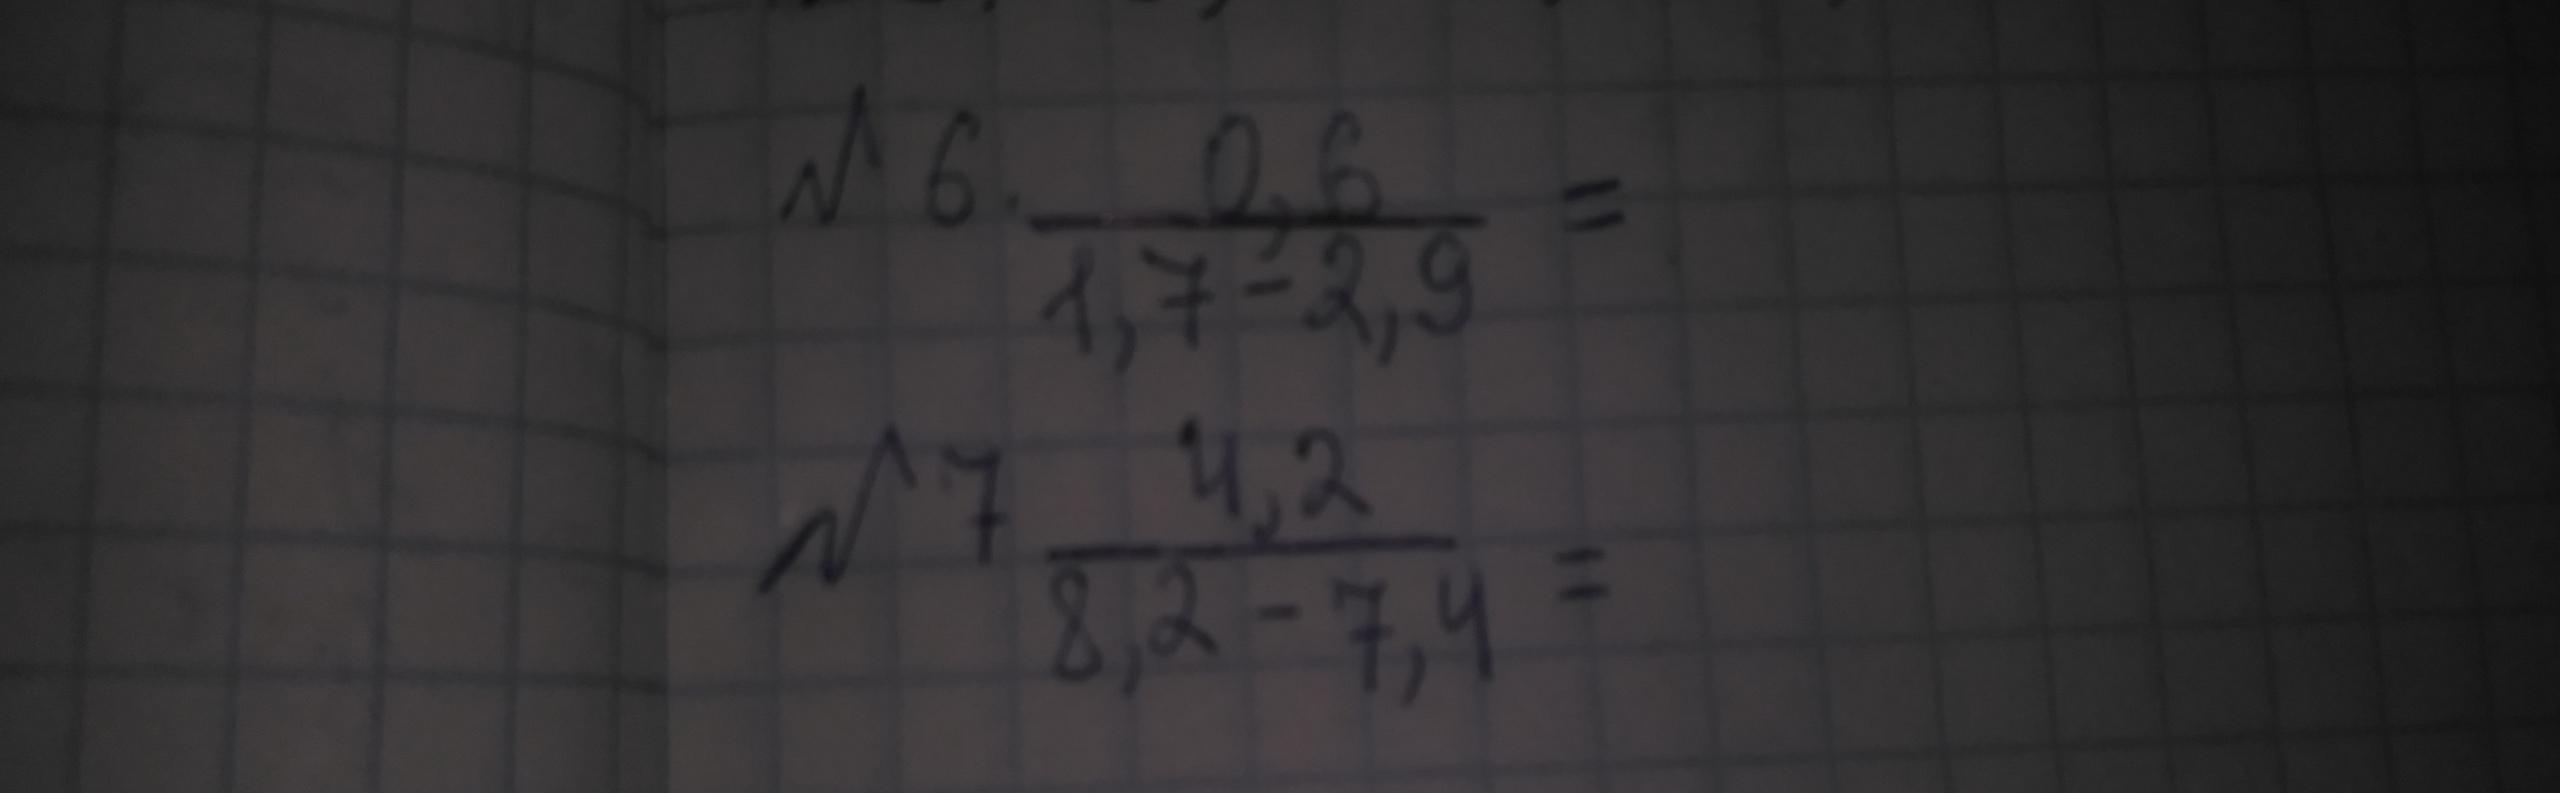 № 6. 0,6 / 1,7 - 2,9 =
№ 7 4,2 / 8,2 - 7,4 =